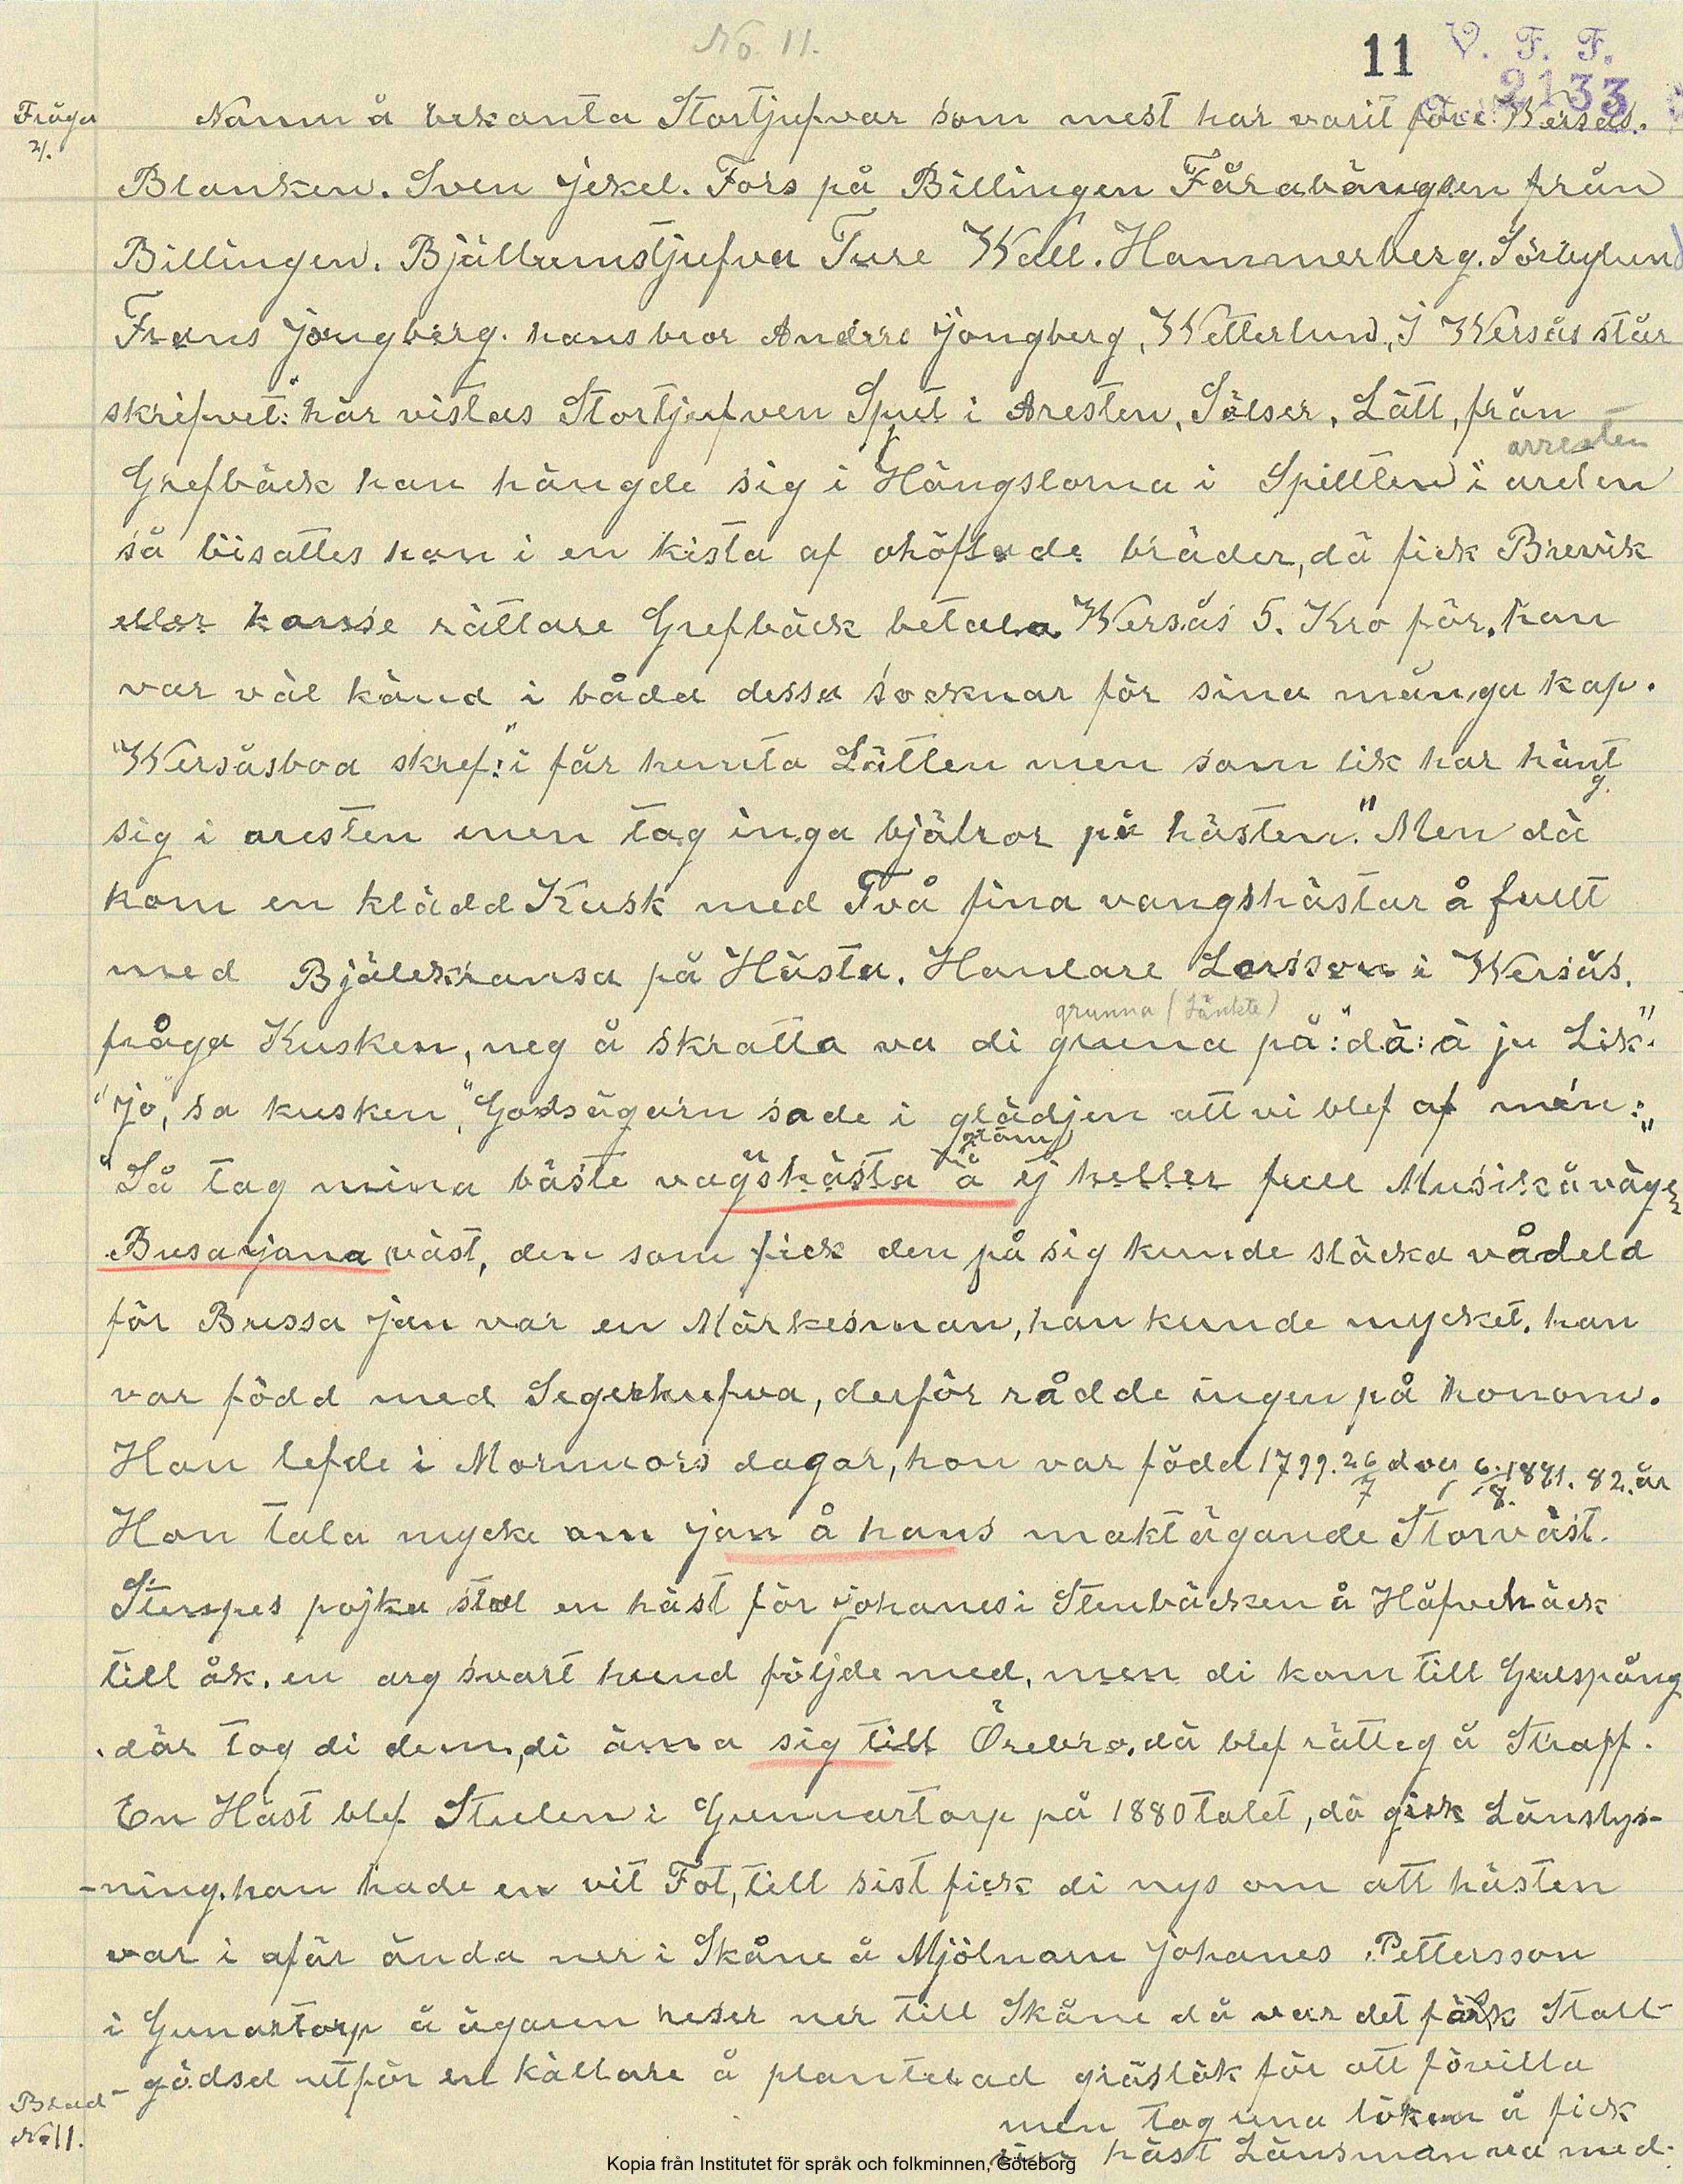 No. 11.
11 V. F. F.
2133
Fråga
21.
Namn å bekanta Stortjufvar som mest har varit före Wersås.
Blanken. Sven Jekel. Fors på Billingen Fårabängsen från
Billingen. Bjällumstjufva Ture Wall. Hammerberg. Sörbylund
Frans Jongberg. hans bror Andere Jongberg, Wetterlund, I Wersås står
skrifvet: "här vistas Stortjufven Sput i Aresten, Sälser, Lätt, från
arresten
Grefbäck han hängde sig i Hängslorna i Spiltten i arden
så bisattes han i en kista af ohöflade bräder, då fick Brevik
eller kanse rättare Grefbäck betala Wersås 5. Kro för. han
var väl känd i båda dessa socknar för sina många kap.
"Wersåsboa skref:" i får hemta Lätten men som lik har hängt
sig i aresten men tag inga bjälror på hästen." Men då
kom en klädd Kusk med Två fina vangshästar å fullt
med Bjälekransa på Hästa. Hanlare Larsson i Wersås.
grunna (tänkte)
fråga Kusken, neg å skratta va di gruna på: "dä: ä ju Lik."
"Jo, sa kusken, "Godsägarn sade i glädjen att vi blef af män:"
gläm
"Så tag mina bäste vagshästa å ej heller full Musik å väge
Busarjana väst, den som fick den på sig kunde släcka vådeld
för Bussa Jan var en Märkesman, han kunde mycket. han
var född med Segerhufva, derför rådde ingen på honom.
Han lefde i Mormors dagar, hon var född 1799. 26/7 dog 6/8. 1881. 82. år
Hon tala mycke om Jan å hans maktägande Storväst.
Sterspes pojka stal en häst för Johanes i Stenbäcken å Håfvebäck
till åk. en arg svart hund följde med, men di kom till Gulspång
. där tog di dem, di ämna sig till Örebro. då blef rätteg å Straff.
En Häst blef Stulen i Gunnartorp på 1880 talet, då gick Länslys-
-ning. han hade en vit Fot, till sist fick di nys om att hästen
var i afär ända ner i Skåne å Mjölnarn Johanes Pettersson
i Gunartorp å ägaren reser ner till Skåne då var det färsk Stall-
gödsel utför en källare å planterad gräslök för att förvilla
men tog una löken å fick
sin häst Länsman va med.
Blad-
No 11.
Kopia från Institutet för språk och folkminnen, Göteborg